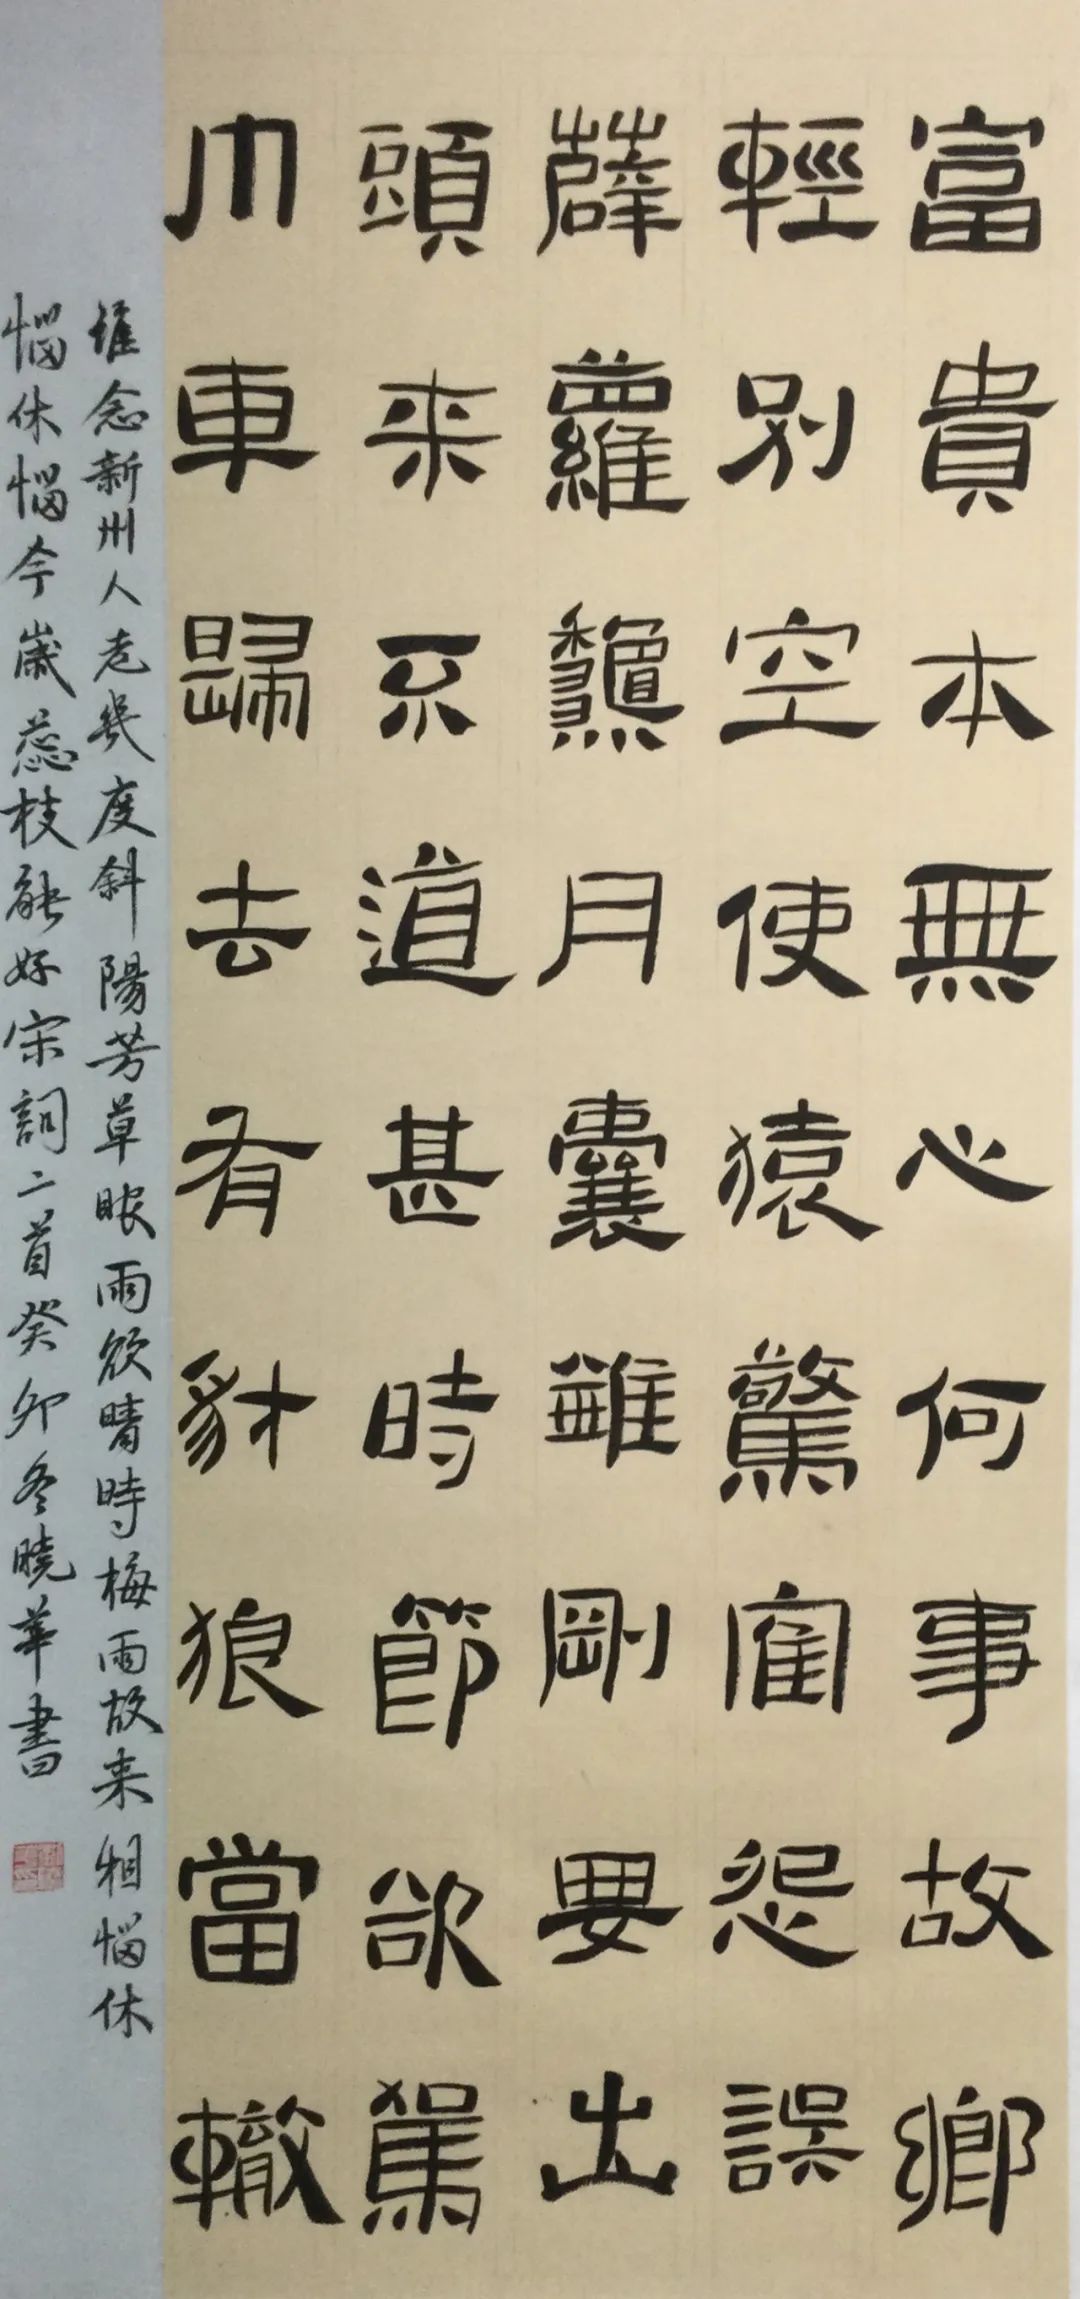 富貴本無心何事故鄉
輕別空使猿驚隺怨誤
薜蘿龝月囊錐剛要出
頭来不道甚時節欲駕
巾車歸去有豺狼當轍
誰念新州人老幾度斜陽芳草眼雨欲晴時梅雨故来相惱休
惱休惱今歲荔枝能好宋詞二首癸卯冬曉華書